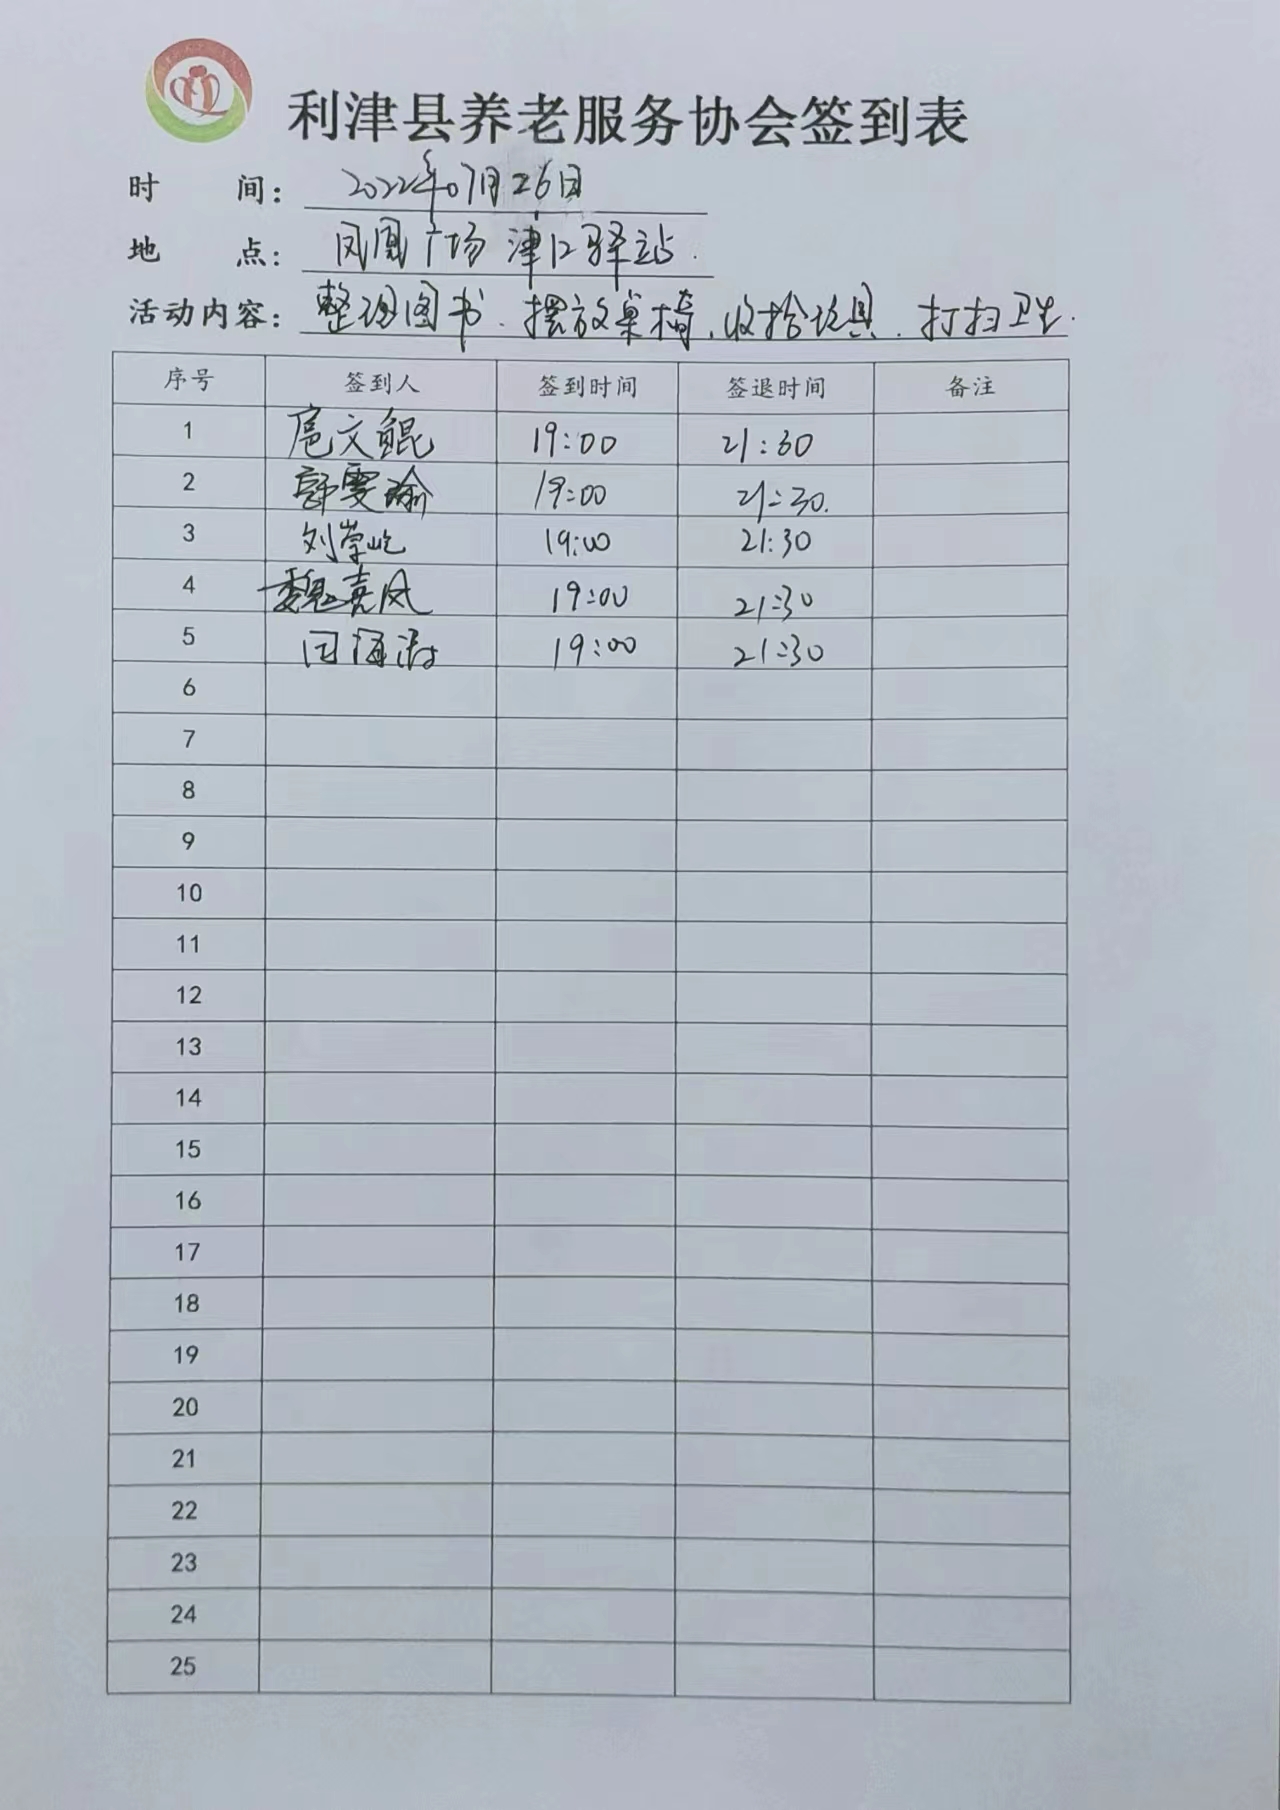 利津县养老服务协会签到表
时 间: 2022年07月26日
地 点: 凤凰广场 津口驿站.
活动内容: 整理图书、摆放桌椅、收拾玩具、打扫卫生.
序号 签到人 签到时间 签退时间 备注
1 扈文鲲 19:00 21:30
2 雯瑜 19:00 21:30.
3 刘崇屹 19:00 21:30
4 魏嘉凤 19:00 21:30
5 19:00 21:30
6
7
8
9
10
11
12
13
14
15
16
17
18
19
20
21
22
23
24
25